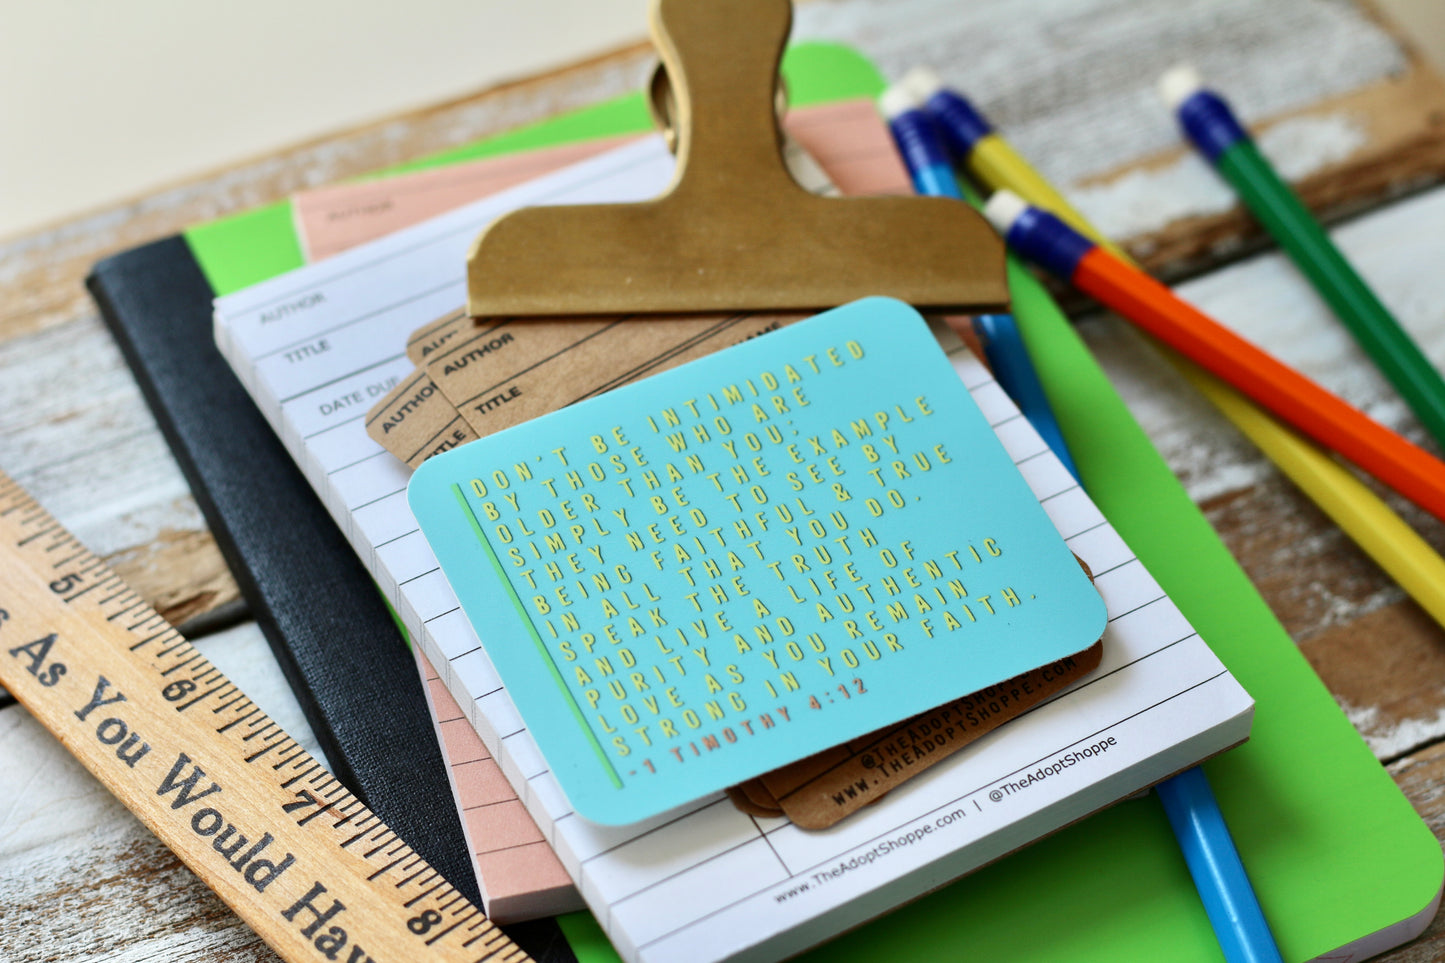 AUTHOR
AUTHOR
TITLE
DATE DUE
AUTHOR
AUTHOR
TITLE
NAME
AUTHOR
TITLE
DON'T BE INTIMIDATED
BY THOSE WHO ARE
OLDER THAN YOU;
SIMPLY BE THE EXAMPLE
THEY NEED TO SEE BY
BEING FAITHFUL & TRUE
IN ALL THAT YOU DO.
SPEAK THE TRUTH
AND LIVE A LIFE OF
PURITY AND AUTHENTIC
LOVE AS YOU REMAIN
STRONG IN YOUR FAITH.
-1 TIMOTHY 4:12
@THEADOPTSHOPPE
WWW.THEADOPTSHOPPE.COM
www.TheAdoptShoppe.com | @TheAdoptShoppe
5 6 7 8
As You Would Hav